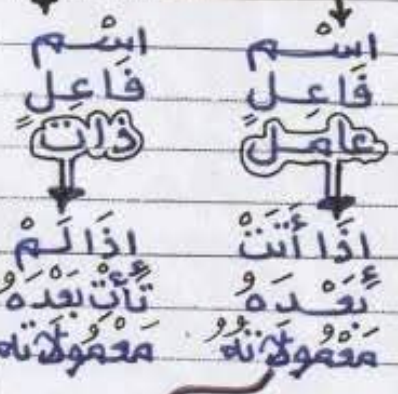 اسْم
فَاعِلٍ
عامل
إِذَا أَتَتْ
بَعْدَهُ
مَعْمُولَاتُهُ
اسْم
فَاعِلٍ
ذات
إِذَا لَمْ
تَأْتِ بَعْدَهُ
مَعْمُولَاتُهُ